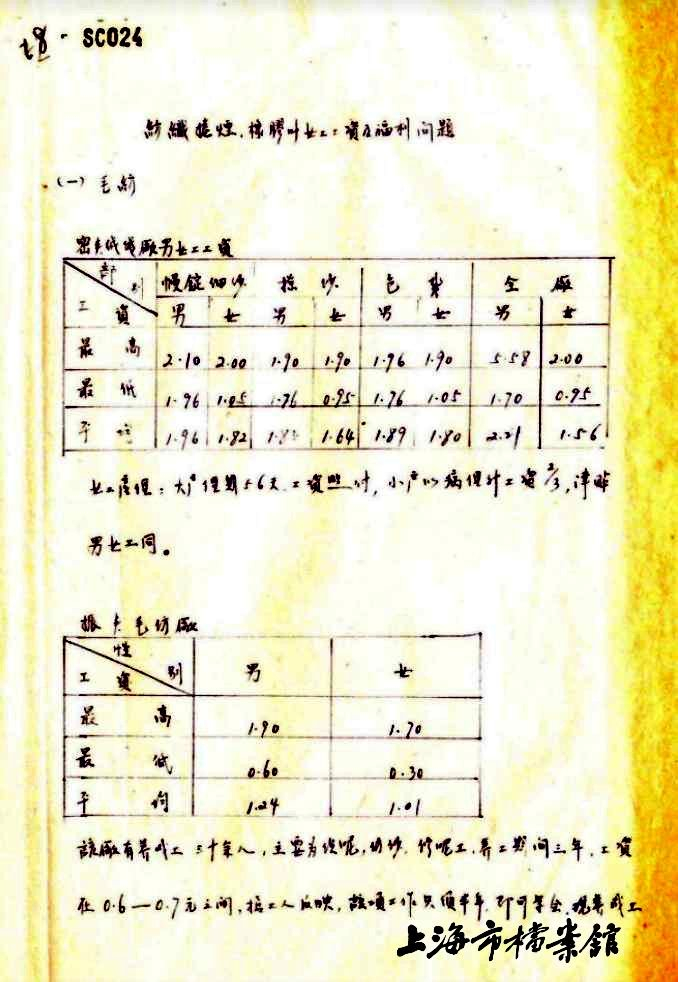 SC024
紡織捲煙、橡膠叶女工工資及福利问題
(一) 毛紡
密丰绒线廠男女工工資
部别 工資 慢錠细沙 捻沙 包裝 全廠
男 女 男 女 男 女 男 女
最高 2.10 2.00 1.90 1.90 1.96 1.90 5.58 2.00
最低 1.96 1.05 1.76 0.95 1.76 1.05 1.70 0.95
平均 1.96 1.82 1.64 1.89 1.80 2.21 1.56
女工產假：大產假期56天工資照付，小產以病假计工資2/3，津貼
男女工同。
振丰毛纺廠
性别 工資 男 女
最高 1.90 1.70
最低 0.60 0.30
平均 1.24 1.01
該廠有养成工三十余人，主要为织呢，纺纱，修呢工，养工期间三年，工資
在0.6—0.7元之间，据工人反映，該项工作只须半年，即可学会，现养成工
上海市檔案館